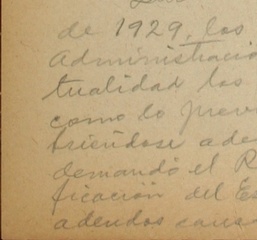 de 1929, los
Administració
tualidad los
como lo prev
triéndose ade
demandó el R
ficación del Es
adeudos causa